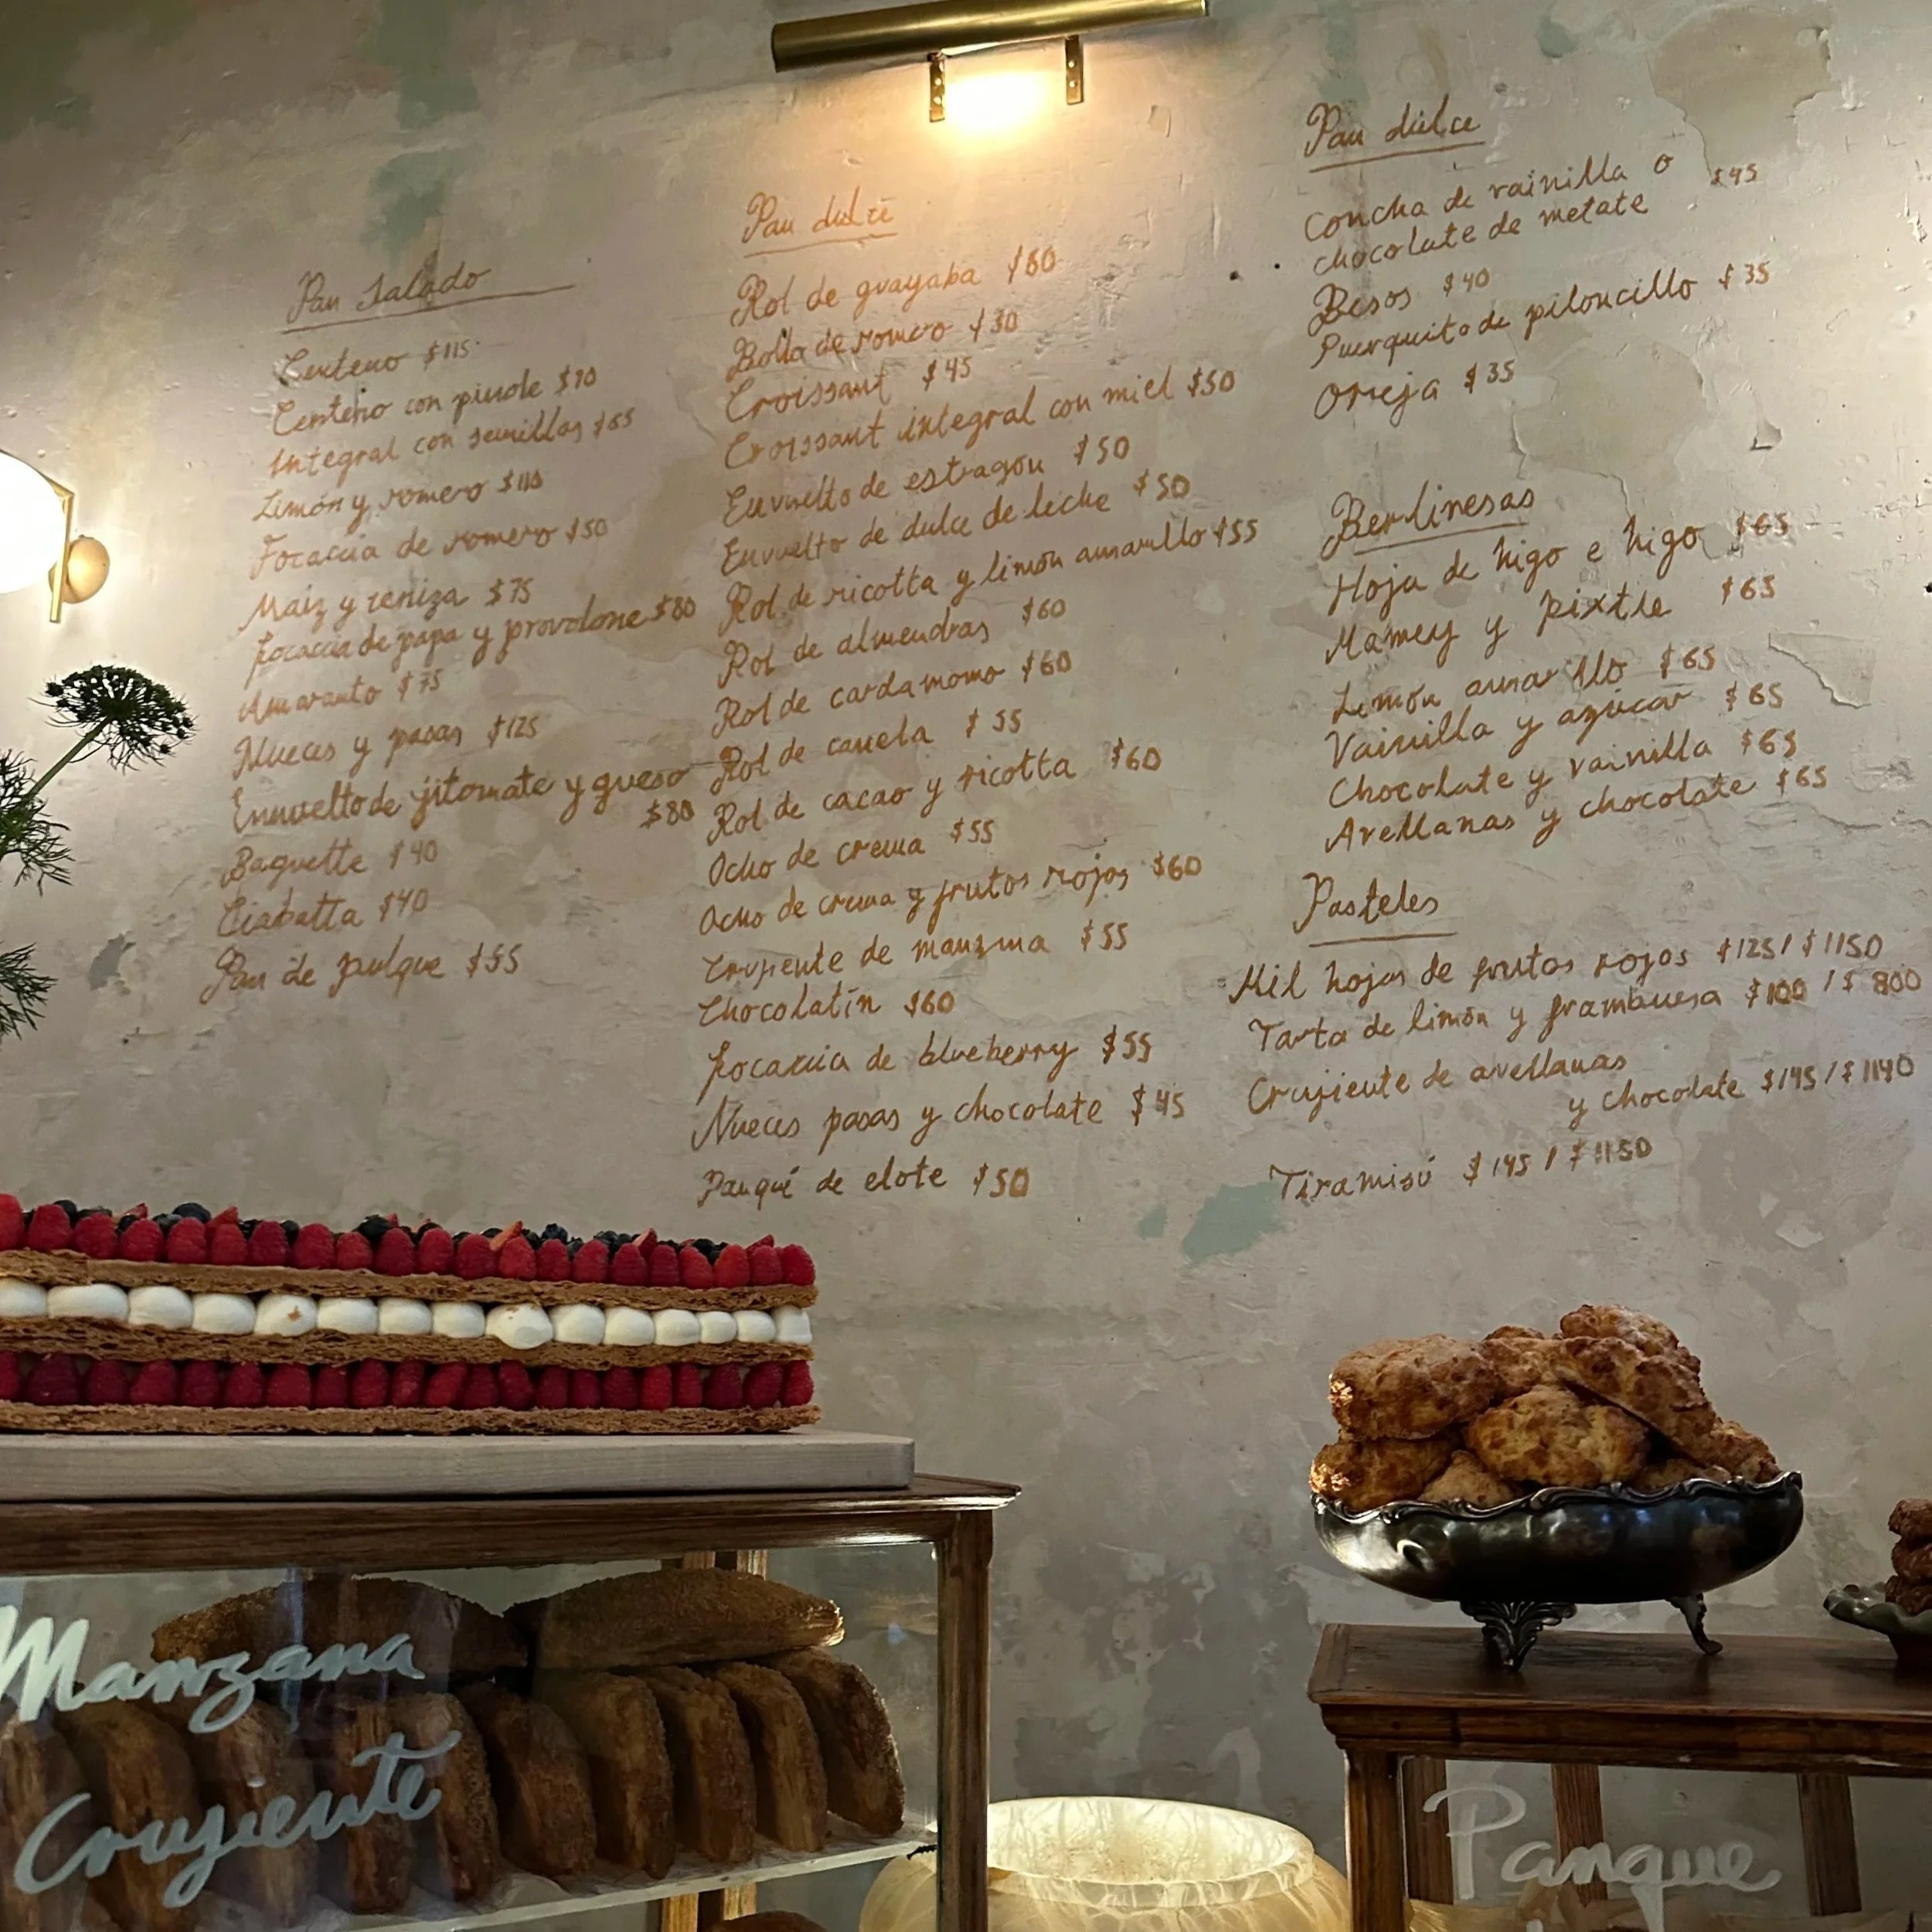 Pan salado
Centeno $115
Centeno con pinole $70
Integral con semillas $85
Limón y romero $110
Focaccia de romero $50
Maíz y ceniza $75
Focaccia de papa y provolone $80
Amaranto $75
Nueces y pasas $125
Envuelto de jitomate y queso
$80
Baguette $40
Ciabatta $40
Pan de pulque $55
Pan dulce
Rol de guayaba $60
Bollo de romero $30
Croissant $45
Croissant integral con miel $50
Envuelto de estragon $50
Envuelto de dulce de leche $50
Rol de ricotta y limón amarillo $55
Rol de almendras $60
Rol de cardamomo $60
Rol de canela $55
Rol de cacao y ricotta $60
Ocho de crema $55
Ocho de crema y frutos rojos $60
Crujiente de manzana $55
Chocolatín $60
Focaccia de blueberry $55
Nueces pasas y chocolate $45
Panqué de elote $50
Pan dulce
Concha de vainilla o $45
chocolate de metate
Besos $40
Puerquito de piloncillo $35
Oreja $35
Berlinesas
Hoja de higo e higo $65
Mamey y pixtle $65
Limón amarillo $65
Vainilla y azúcar $65
Chocolate y vainilla $65
Avellanas y chocolate $65
Pasteles
Mil hojas de frutos rojos $125 / $1150
Tarta de limón y frambuesa $100 / $800
Crujiente de avellanas
y chocolate $145 / $1140
Tiramisú $145 / $1150
Manzana
Crujiente
Panque